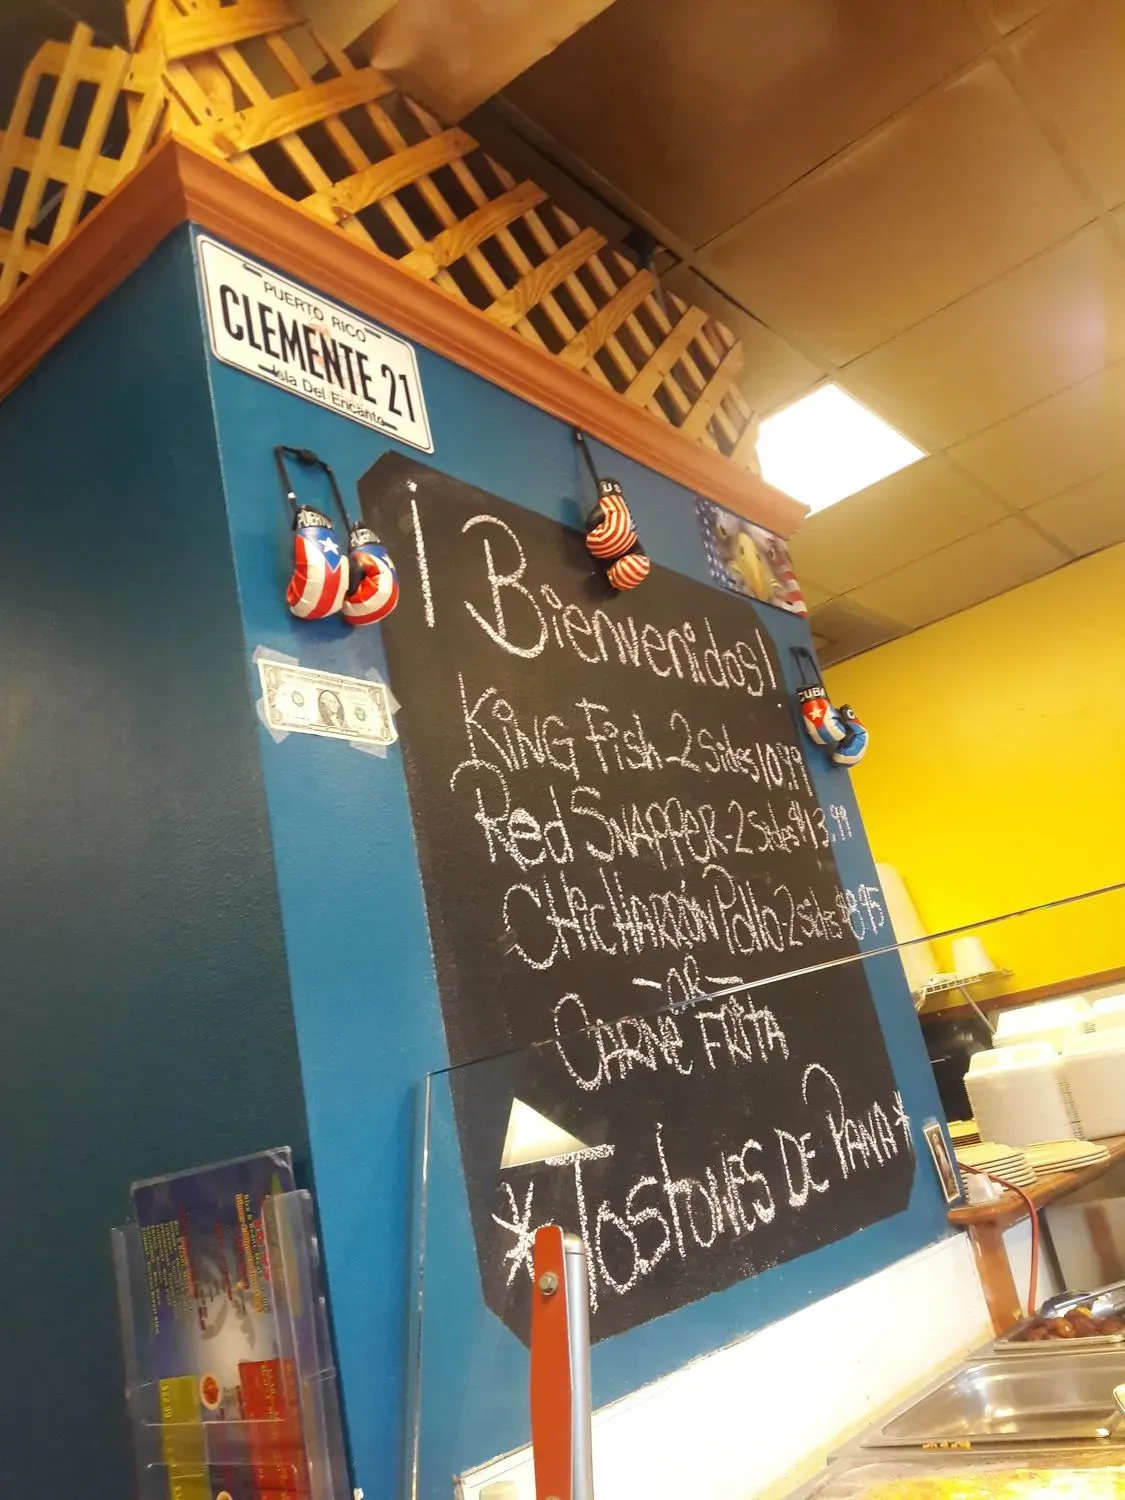 PUERTO RICO
CLEMENTE 21
Isla Del Encanto
PUERTO
US
CUBA
¡Bienvenidos!
KiNG Fish-2 Sides 10.99
Red SNAPPER-2 Sides $13.99
CHicHARRóN Pollo-2 Sides $8.95
-OR-
CARNE FRitA
*TostoNES DE PANA*